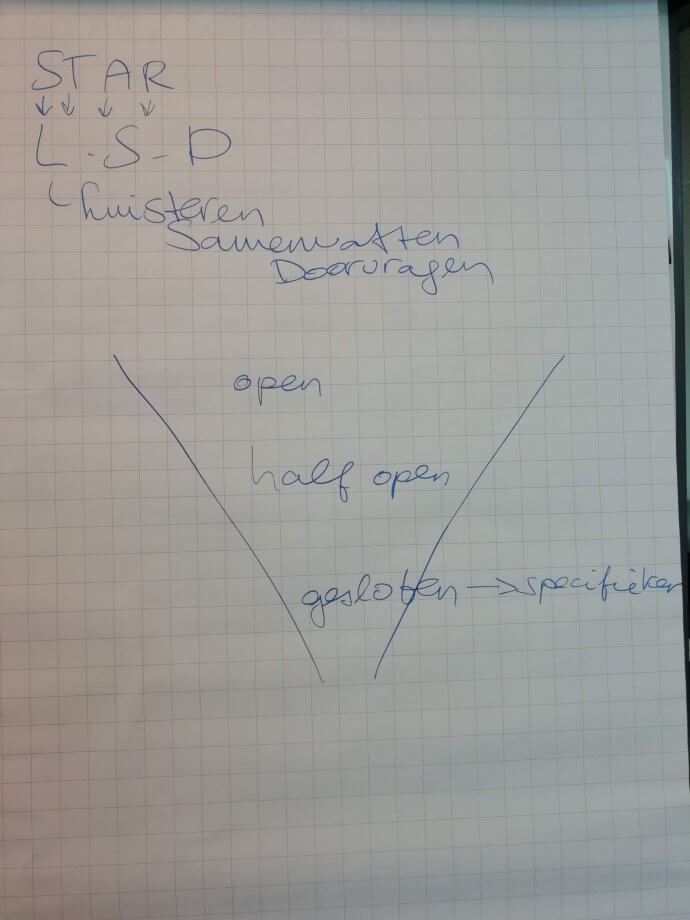 STAR
↓ ↓ ↓ ↓
L-S-D
Luisteren
Samenvatten
Doorvragen
open
half open
gesloten → specifieker